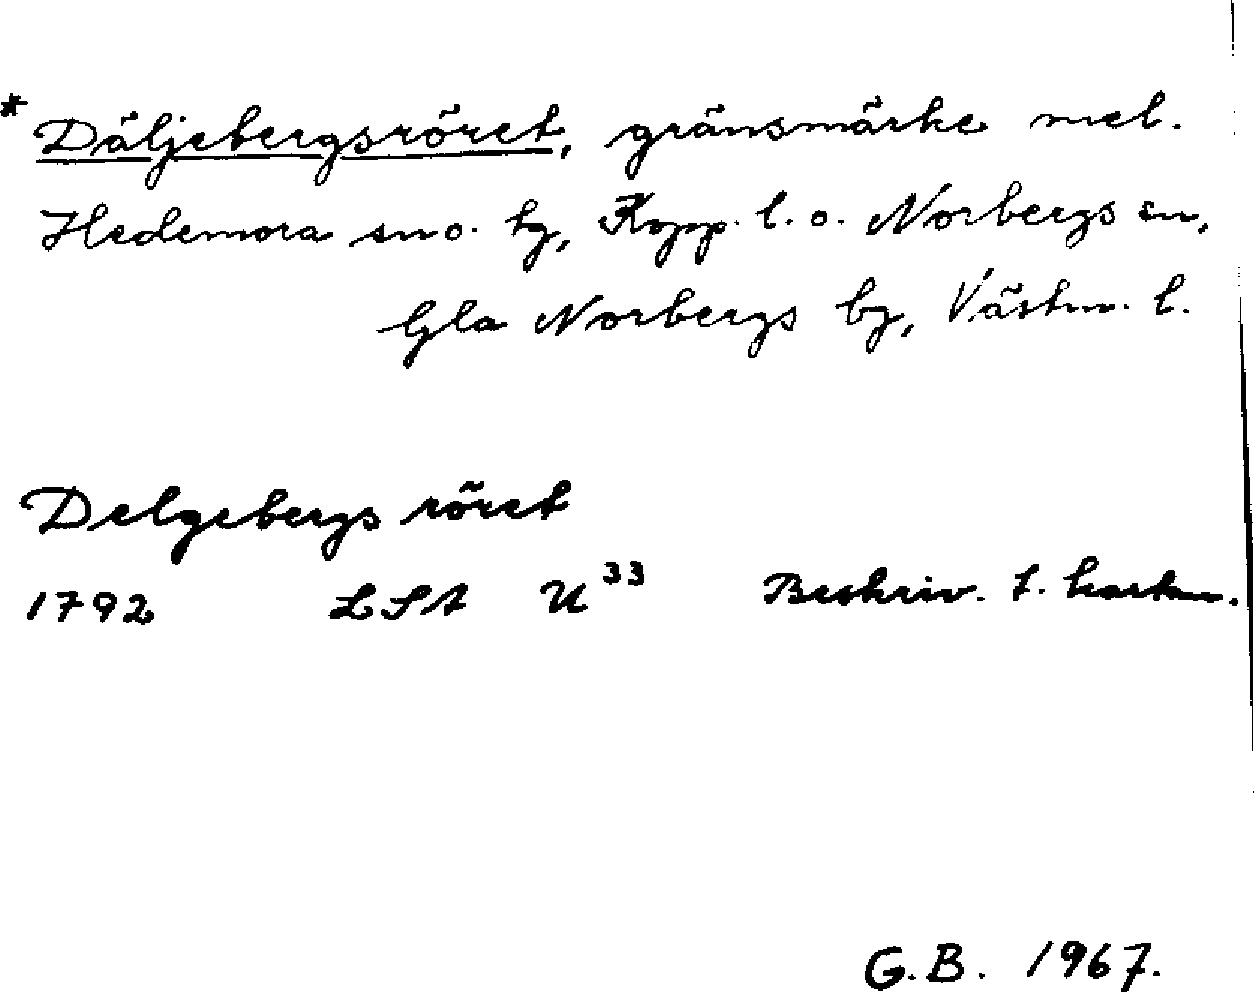 * Däljebergsröret, gränsmärke mel.
Hedemora sn o. tg, Kopp. l. o. Norbergs sn,
Gla Norbergs bg, Västm. l.
Delgebergs röret
1792 LSA U³³ Beskriv. t. kartan.
G.B. 1967.